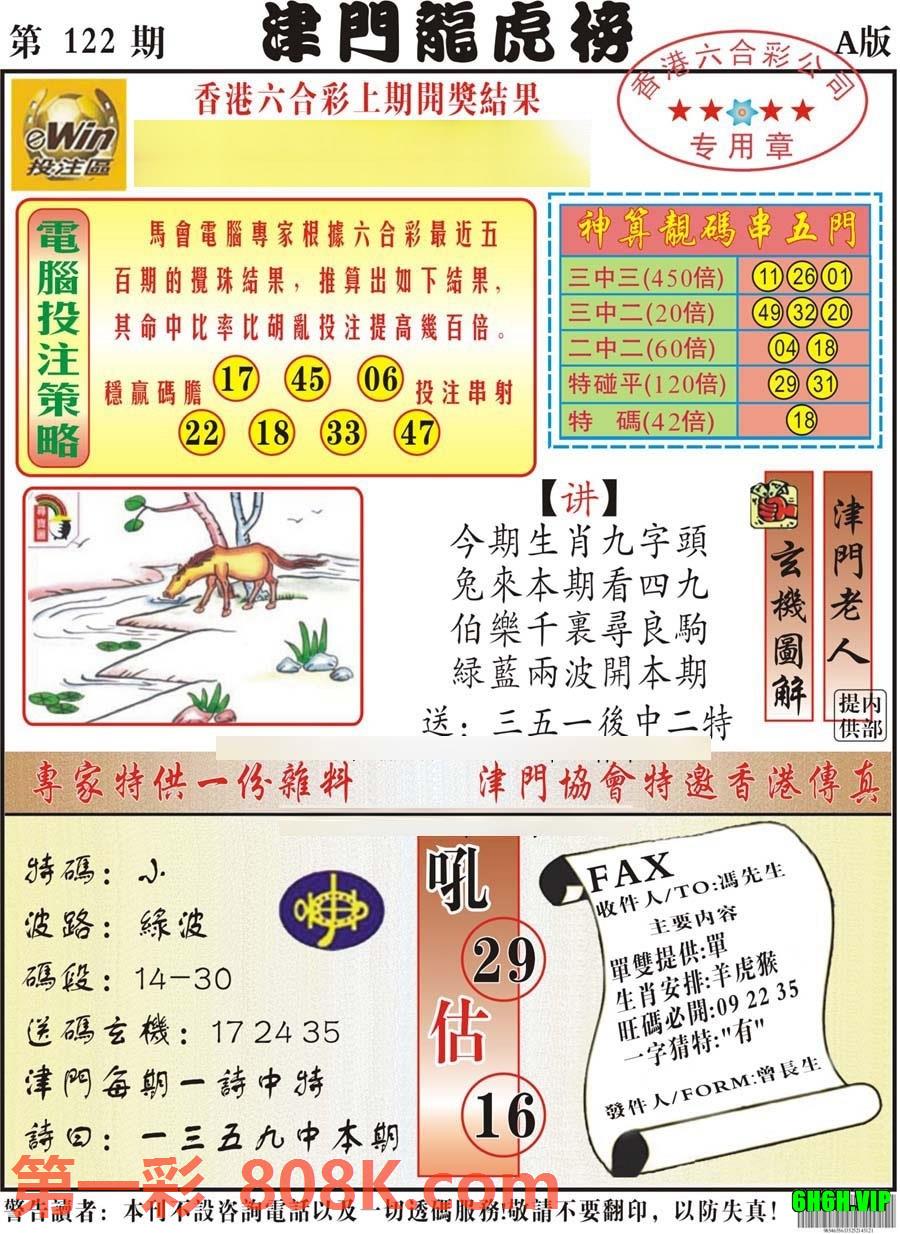 第 122 期
津門龍虎榜
A版
香港六合彩公司
专用章
eWin
投注區
香港六合彩上期開獎結果
電腦投注策略
馬會電腦專家根據六合彩最近五
百期的攪珠結果，推算出如下結果，
其命中比率比胡亂投注提高幾百倍。
穩贏碼膽 17 45 06 投注串射
22 18 33 47
神算靚碼串五門
三中三(450倍) 11 26 01
三中二(20倍) 49 32 20
二中二(60倍) 04 18
特碰平(120倍) 29 31
特 碼(42倍) 18
尋寶圖
【讲】
今期生肖九字頭
兔來本期看四九
伯樂千裏尋良駒
綠藍兩波開本期
送：三五一後中二特
玄機圖解
津門老人
内部提供
專家特供一份雜料
津門協會特邀香港傳真
特碼：小
波路：綠波
碼段：14-30
送碼玄機：17 24 35
津門每期一詩中特
詩曰：一三五九中本期
吼
29
估
16
FAX
收件人/TO:馮先生
主要内容
單雙提供:單
生肖安排:羊虎猴
旺碼必開:09 22 35
一字猜特:"有"
發件人/FORM:曾長生
第一彩 808K.com
警告讀者：本刊不設咨詢電話以及一切透碼服務!敬請不要翻印，以防失真！
6H6H.VIP